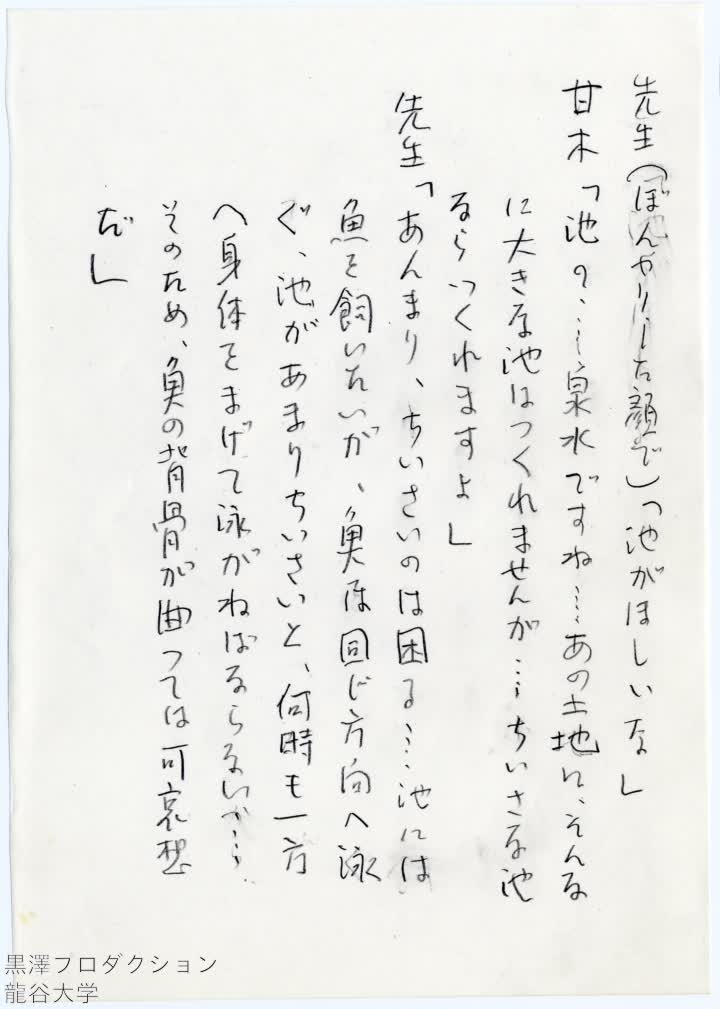 先生（ぼんやりした顔で）「池がほしいな」
甘木「池の……泉水ですね……あの土地に、そんな
に大きな池はつくれませんが……ちいさな池
ならつくれますよ」
先生「あんまり、ちいさいのは困る……池には
魚を飼いたいが、魚は同じ方向へ泳
ぐ、池があまりちいさいと、何時も一方
へ身体をまげて泳がねばならないから……
そのため、魚の背骨が曲っては可哀想
だ」
黒澤プロダクション
龍谷大学